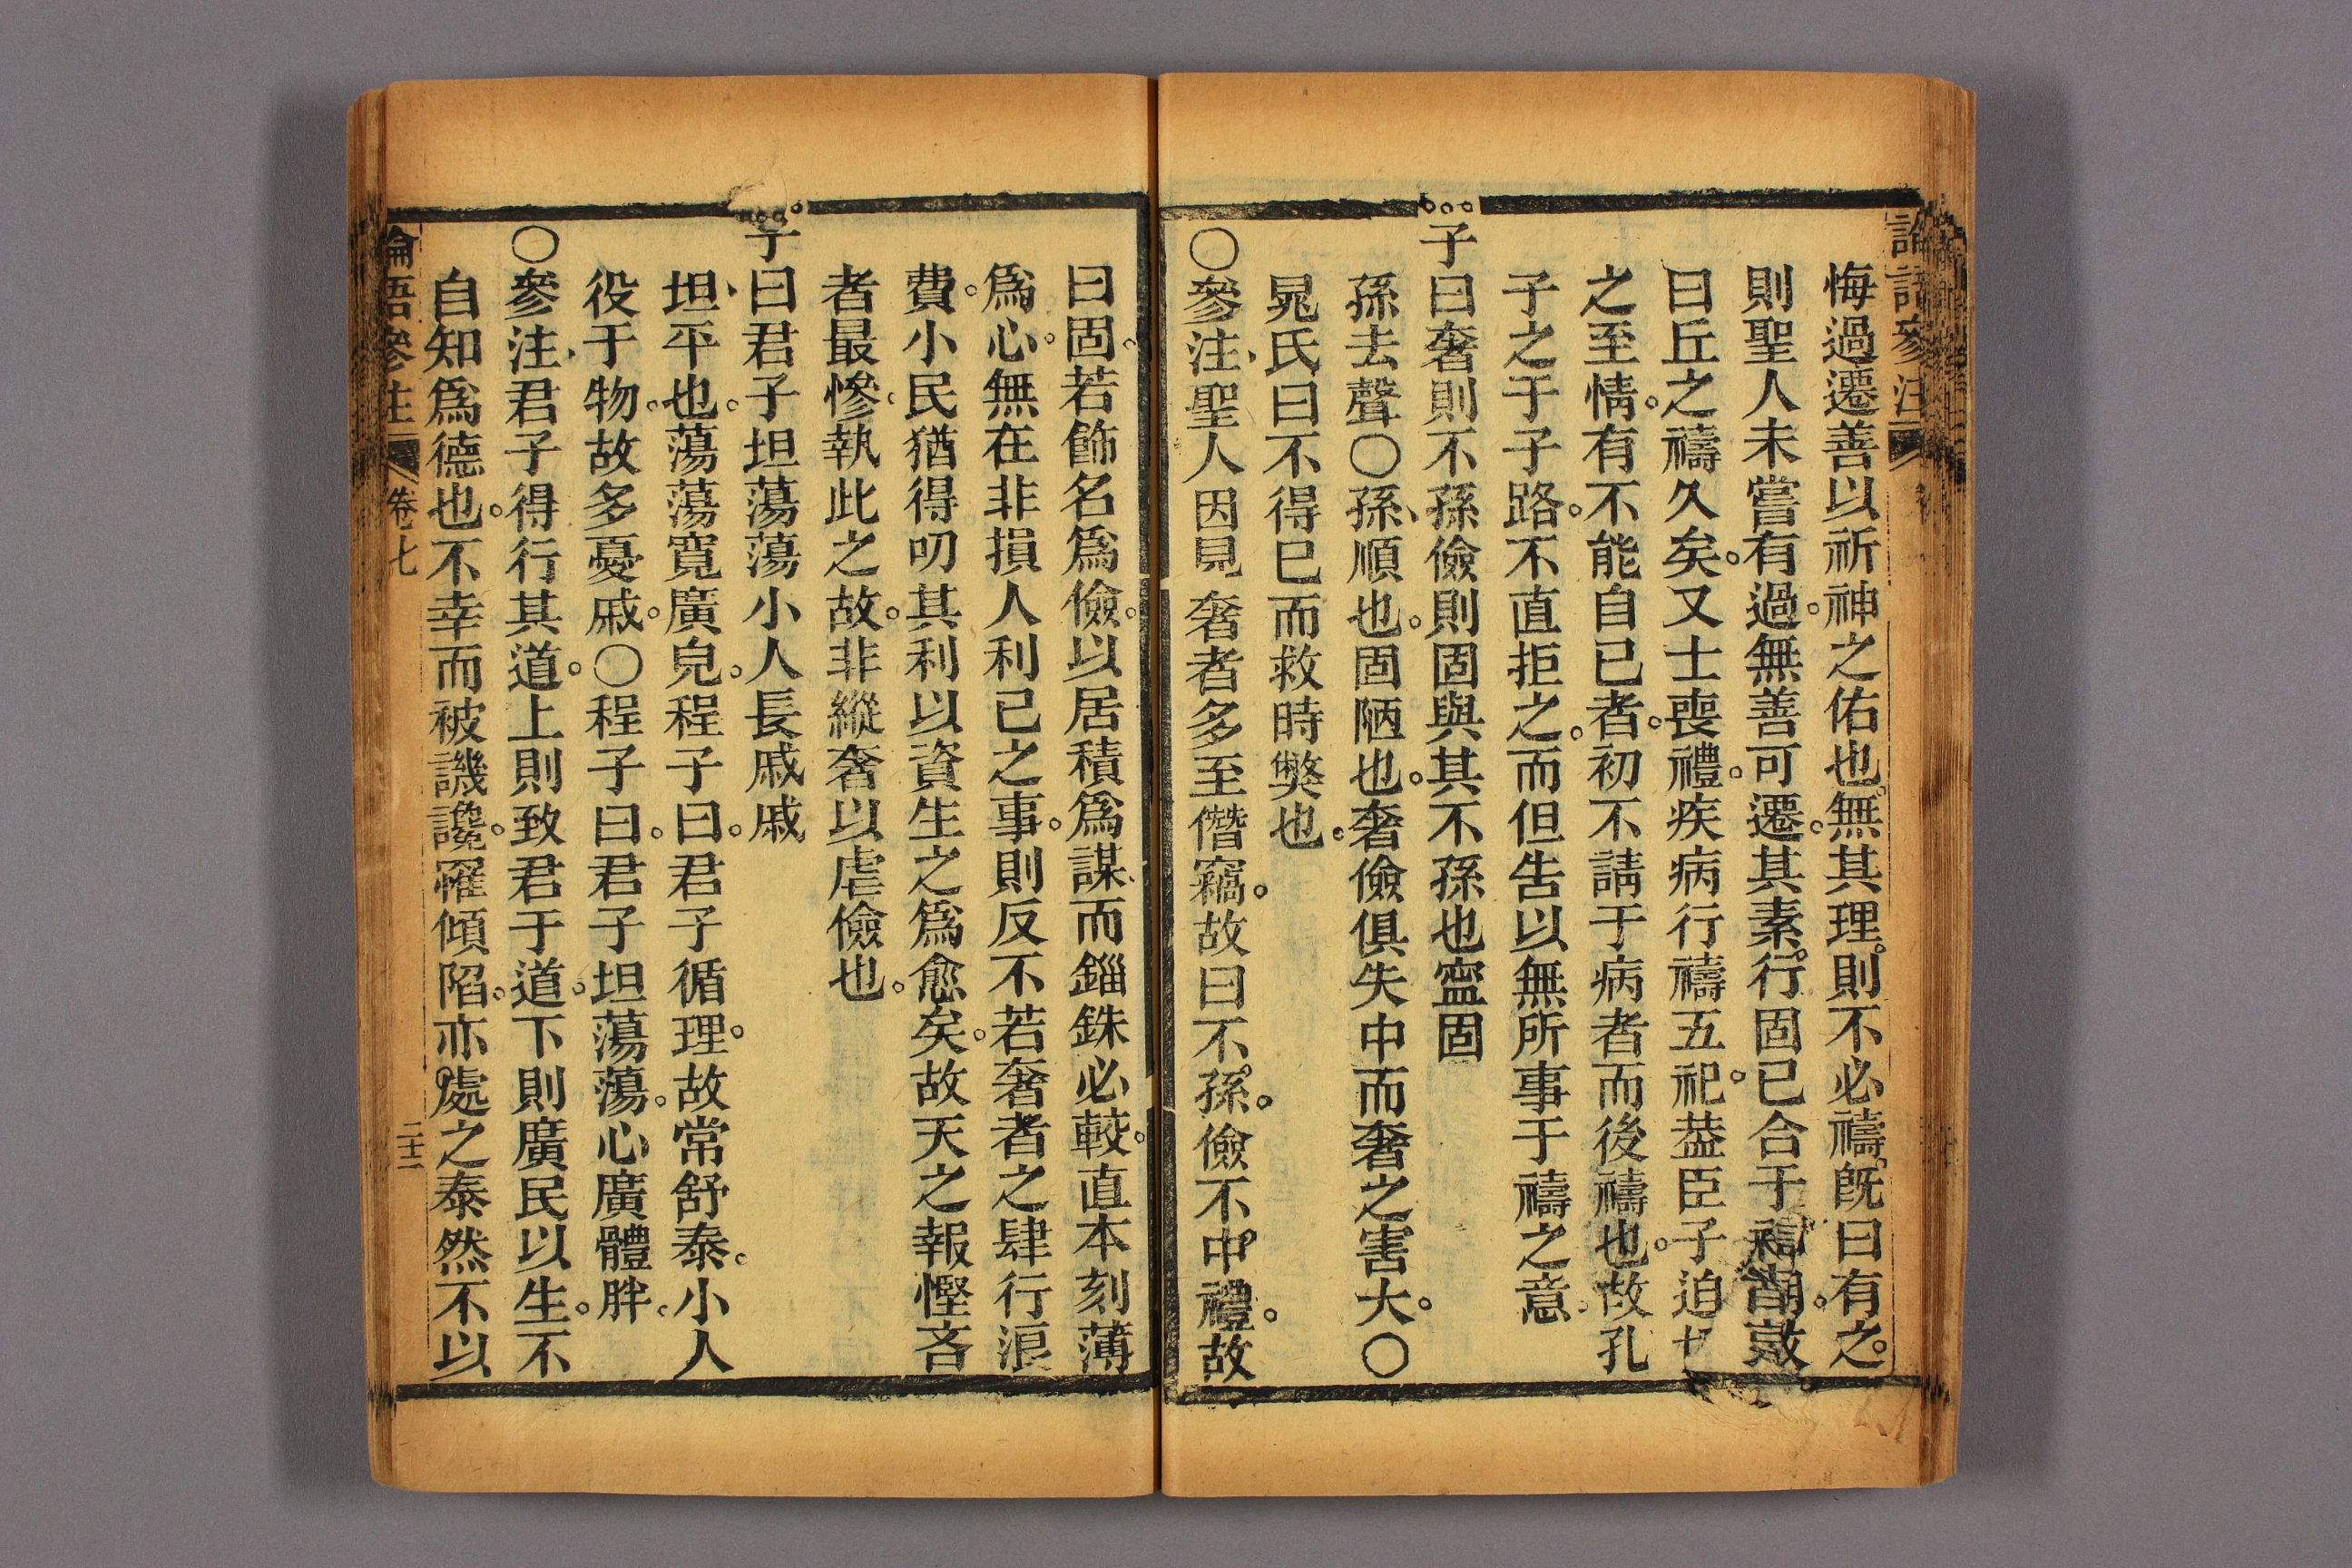 悔過遷善以祈神之佑也無其理則不必禱旣曰有之
則聖人未嘗有過無善可遷其素行固已合于神明故
曰丘之禱久矣又士喪禮疾病行禱五祀葢臣子迫
之至情有不能自已者初不請于病者而後禱也故孔
子之于子路不直拒之而但告以無所事于禱之意
子曰奢則不孫儉則固與其不孫也寍固
孫去聲○孫順也固陋也奢儉俱失中而奢之害大○
晁氏曰不得已而救時獘也
○參注聖人因見奢者多至僭竊故曰不孫儉不中禮故
曰固若飾名爲儉以居積爲謀而錙銖必較直本刻薄
爲心無在非損人利己之事則反不若奢者之肆行浪
費小民猶得叨其利以資生之爲愈矣故天之報慳吝
者最慘執此之故非縱奢以虐儉也
子曰君子坦蕩蕩小人長戚戚
坦平也蕩蕩寬廣皃程子曰君子循理故常舒泰小人
役于物故多憂戚○程子曰君子坦蕩蕩心廣體胖
○參注君子得行其道上則致君于道下則廣民以生不
自知爲德也不幸而被譏讒罹傾陷亦處之泰然不以
論語參注
卷七
二十二